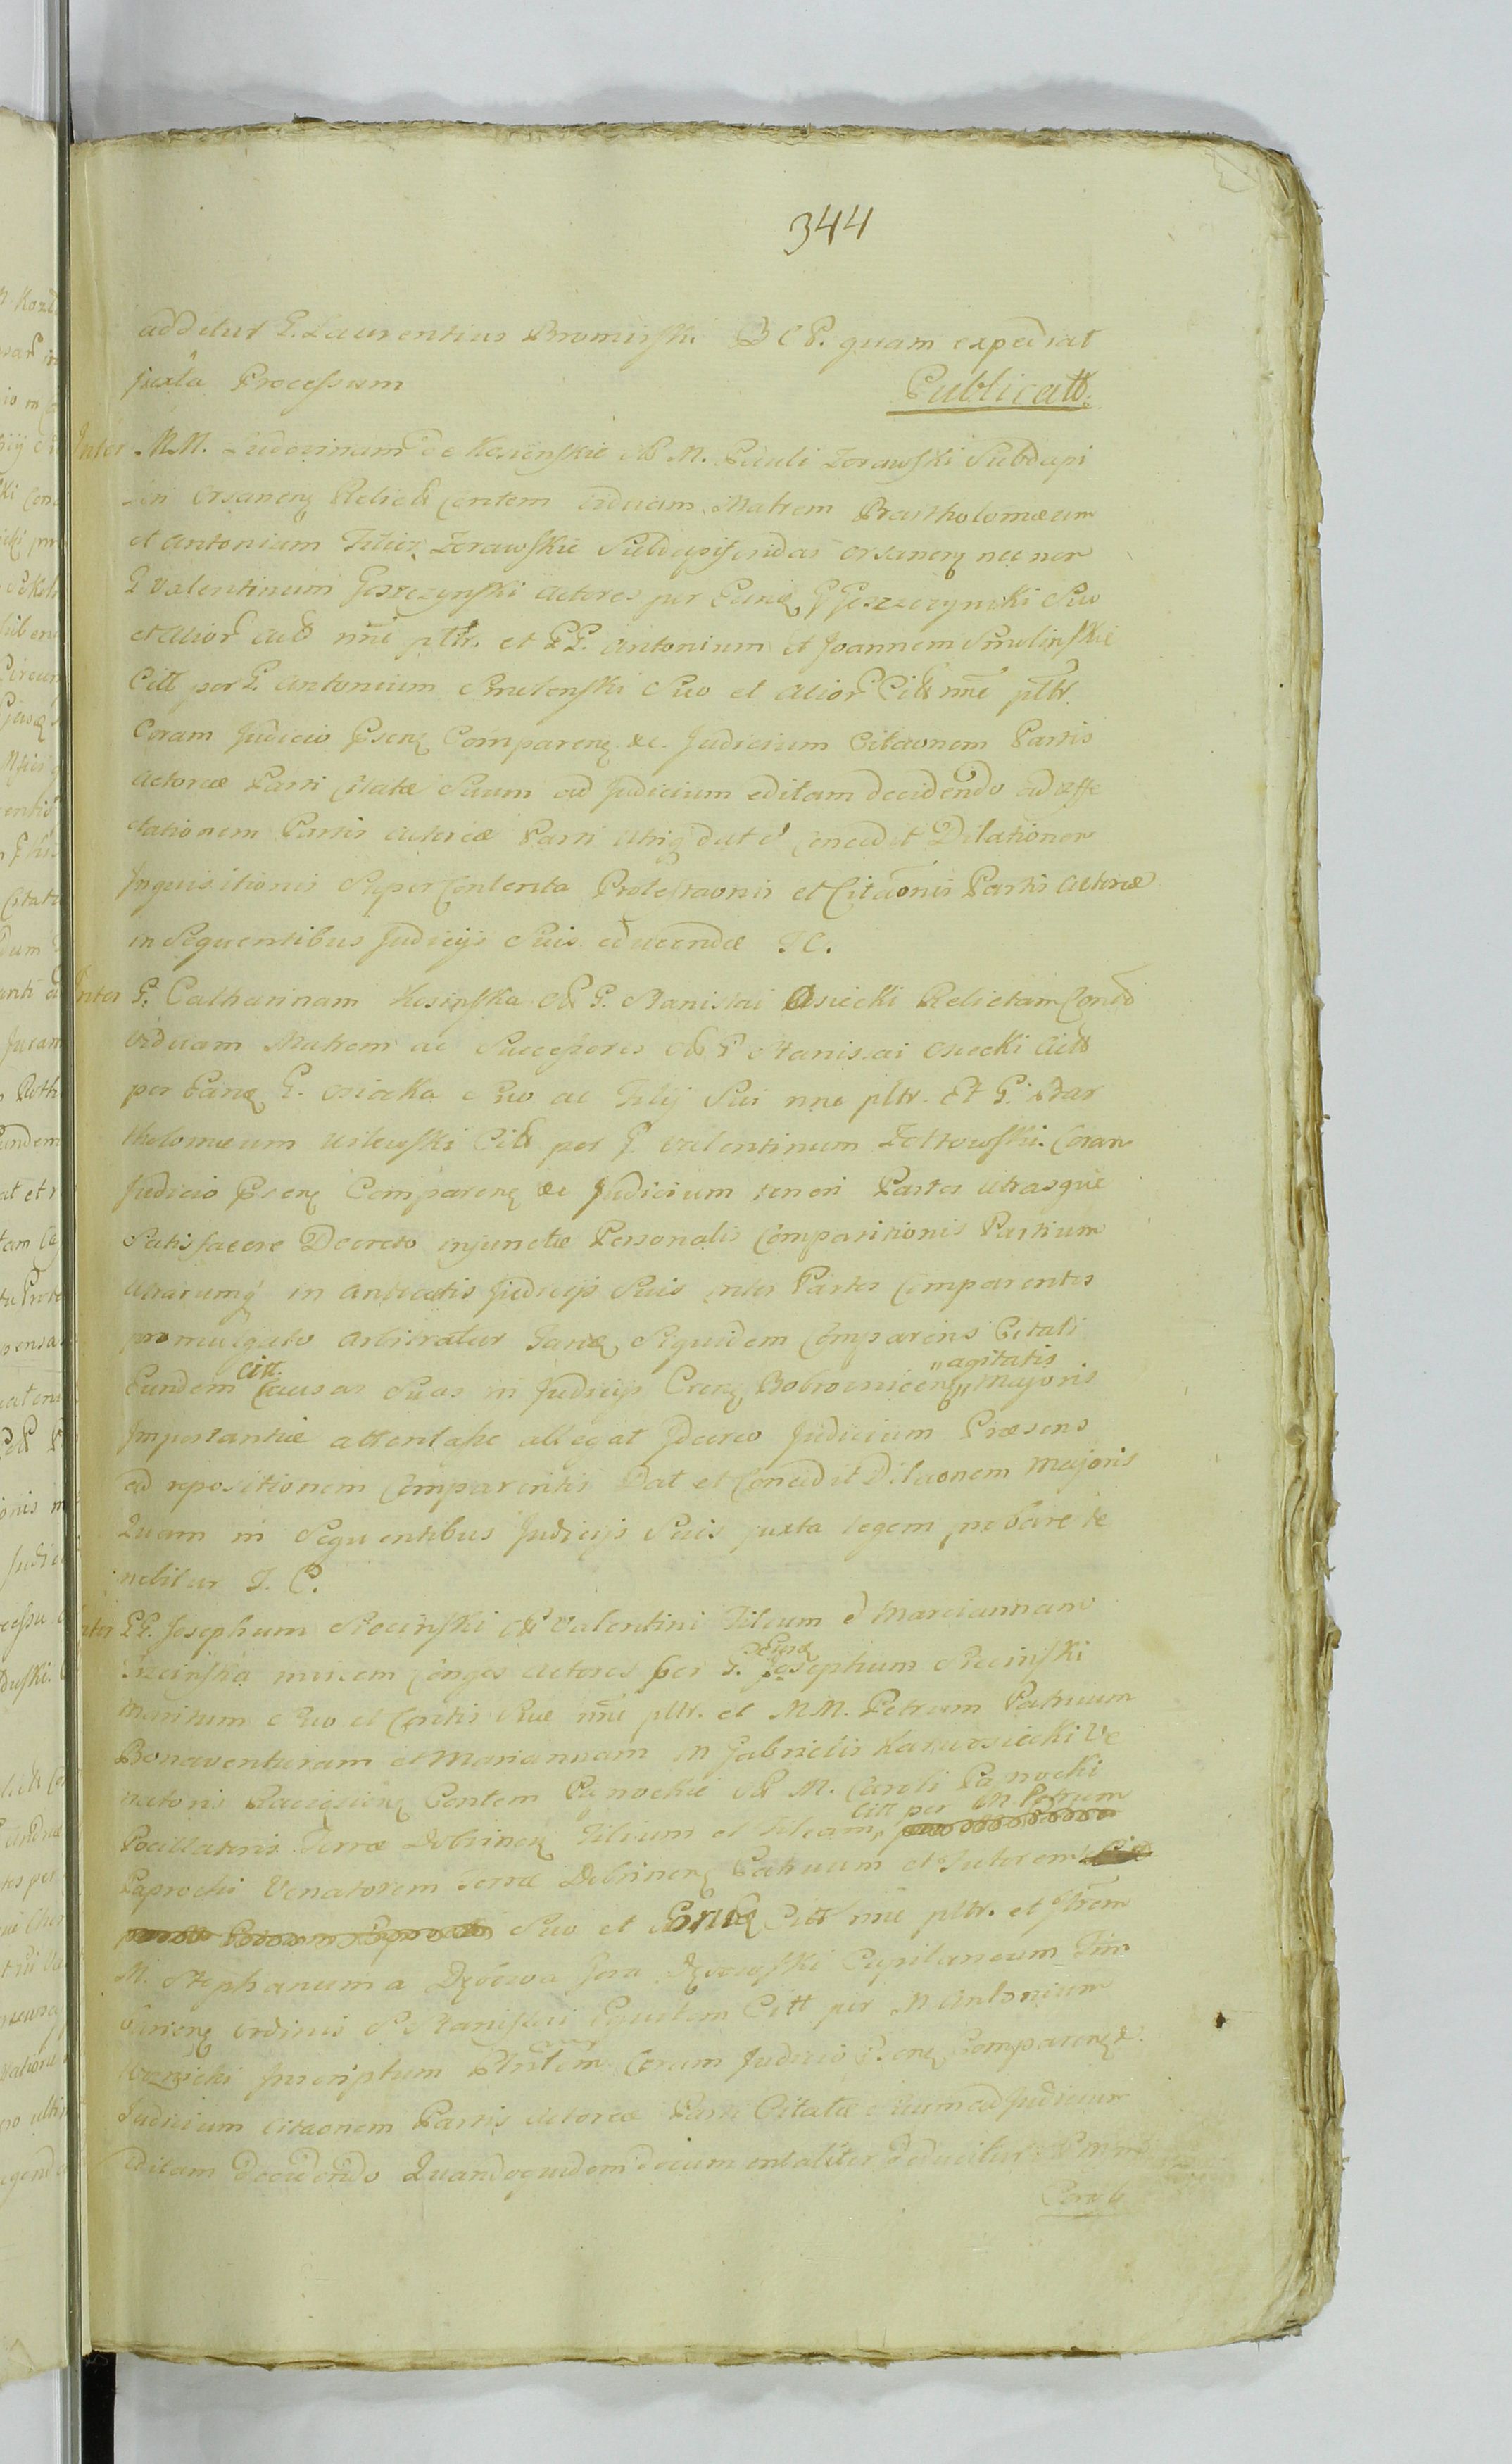 344
additur G. Laurentius Bromirski B C P. quam expediat
juxta Processum Publicatt.
Inter MM. Ludovinam de Kosienskie M. Pauli Zorawski Subdapi
in Orsanen Relictt Contem viduam Matrem Bartholomæum
et Antonium Filios Zorawskie Subdapiferidas Orsanen nec non
G Valentinum Goszczynski Actores per Eund G Goszczynski Suo
et Alior Act nne pltr. et GG. Antonium et Joannem Smolinskie
Citt per G. Antonium Smolenski Suo et Alior Citt nne pltr.
Coram Judicio Psen Comparen &c. Judicium Citaonem Partis
Actoreæ Parti Citatæ Suum ad Judicium editam decidendo ad affe
ctationem Partis Actoreæ Parti Utriq dat et concedit Dilationem
Inquisitionis Super Contenta Protestaonis et Citaonis Partis Actoreæ
in Sequentibus Judicijs Suis educendæ T. C.
Inter G. Catharinam Kosinska G. Stanislai Osiecki Relictam Contt
viduam Matrem ac Successores G Stanislai Osiecki Actt
per Eand G. Osiecka Suo ac Filij Sui nne pltr. Et G. Bar
tholomæum Wilewski Citt per G. Valentinum Zoltowski Coram
Judicio Psen Comparen &c Judicium teneri Partes Utrasque
Satisfacere Decreto injunctæ Personalis Comparitionis Partium
Utrarumq in Antecatis Judicijs Suis inter Partes Comparentes
promulgato Arbitratur Siquidem Comparens Citati
Eundem Citt. Causas Suas in Judicijs Bobrovnicen „agitatis„ Majoris
Importantiæ attentasse allegat Idcirco Judicium Præsens
ad repositionem Comparentis Dat et Concedit Dilaonem Majoris
Quam in Sequentibus Judicijs Suis juxta legem probare te
nebitur T. C.
Inter GG. Josephum Rocinski Valentini Filium et Mariannam
Conges Actores per G. Eund Josephum Rocinski
Maritum Suo et Contis Suæ nne pltr. et MM. Petrum Patruum
Bonaventuram et Mariannam M Gabrielis Karwosiecki Ve
natoris Raciazen Contem Paprockie M. Caroli Paprocki
Pocillatoris Terræ Dobrinen Filium et Filiam, Citt per M Petrum
Paprocki Venatorem Terræ Dobrinen Patruum et Tutorem
Suo et Citt nne pltr. et
M. Stephanum a Dębowa Gora Dębowski Capitaneum
Ordinis S Stanislai Equitem Citt per M Antonium
Inscriptum Coram Judicio P.en Comparen &.
Judicium Citaonem Partis Actoreæ Parti Citatæ Suum ad Judicium
Editam Decidendo Quandoquidem documentaliter Deducitur